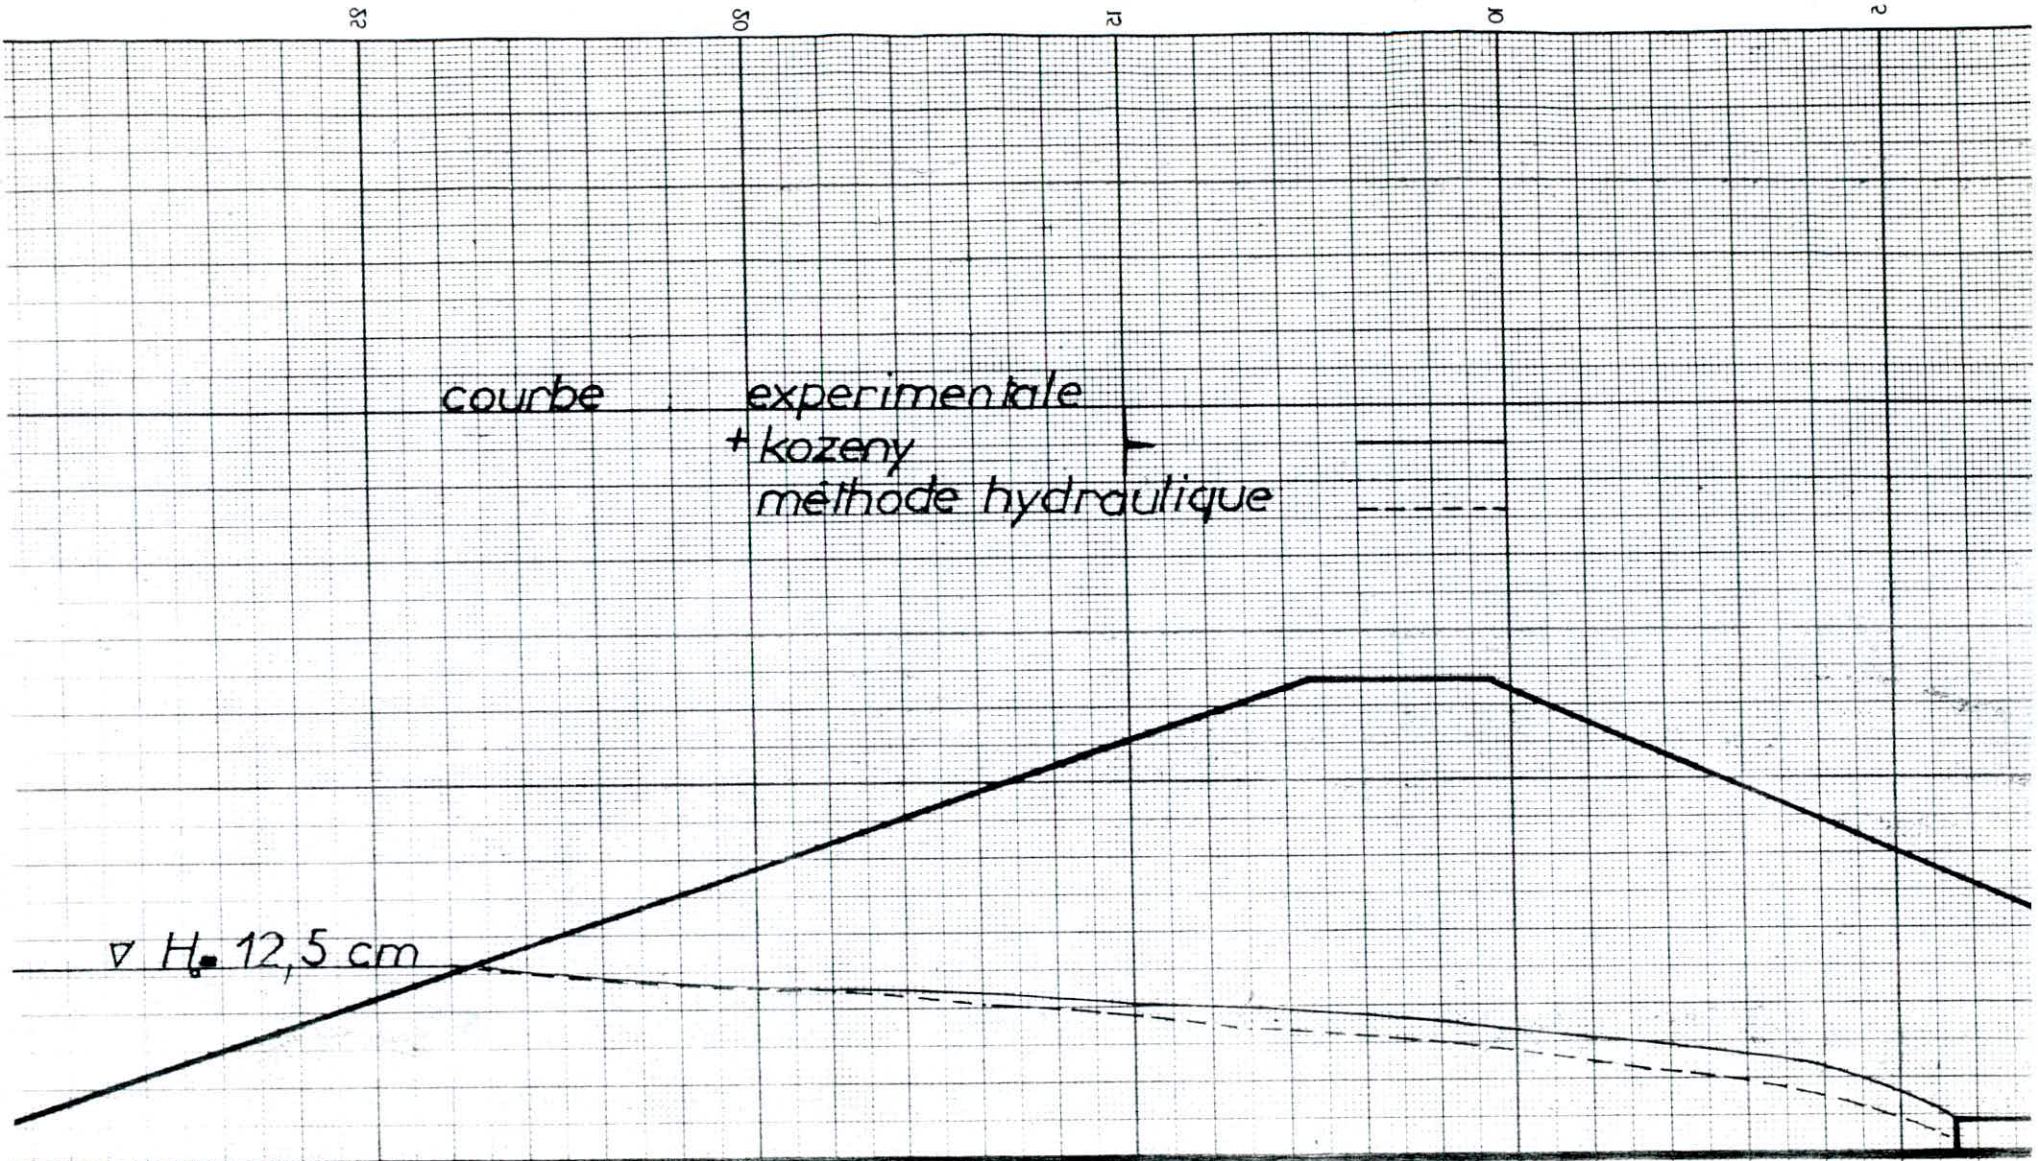 25 20 15 10 5
courbe experimentale
+ kozeny
méthode hydraulique
∇ H₀= 12,5 cm